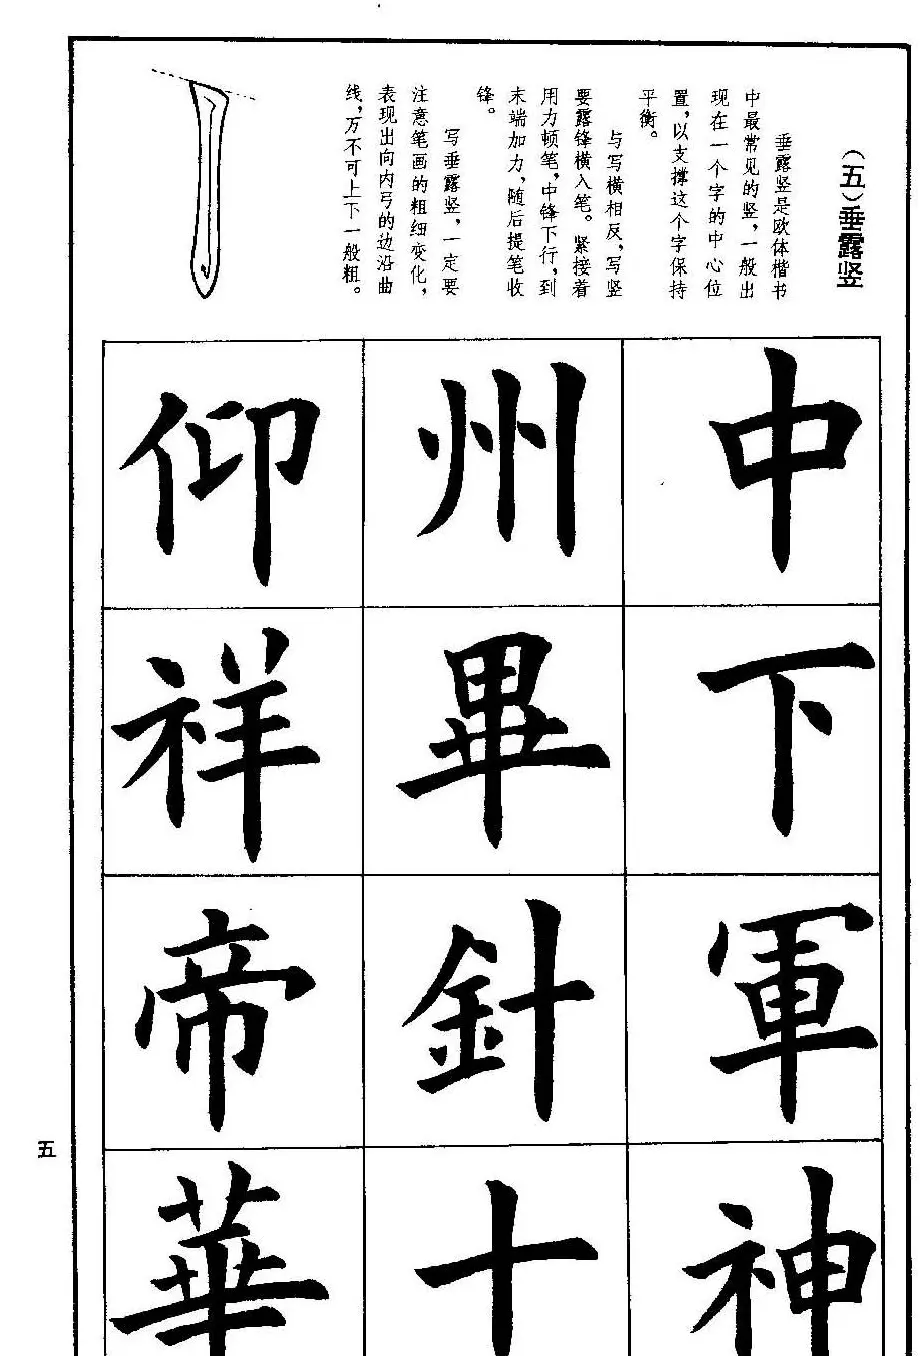 (五)垂露竖
垂露竖是欧体楷书
中最常见的竖，一般出
现在一个字的中心位
置，以支撑这个字保持
平衡。
与写横相反，写竖
要露锋横入笔。紧接着
用力顿笔，中锋下行，到
末端加力，随后提笔收
锋。
写垂露竖，一定要
注意笔画的粗细变化，
表现出向内弓的边沿曲
线，万不可上下一般粗。
中
下
軍
神
州
畢
針
十
仰
祥
帝
華
五